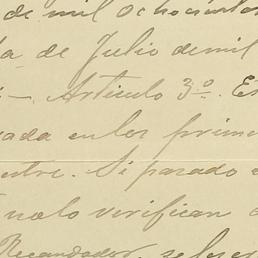 de mil ochocientos
de Julio de mil
Articulo 3º. E
en los prime
tre. Si pasado
no lo verifican
Recaudador, se les